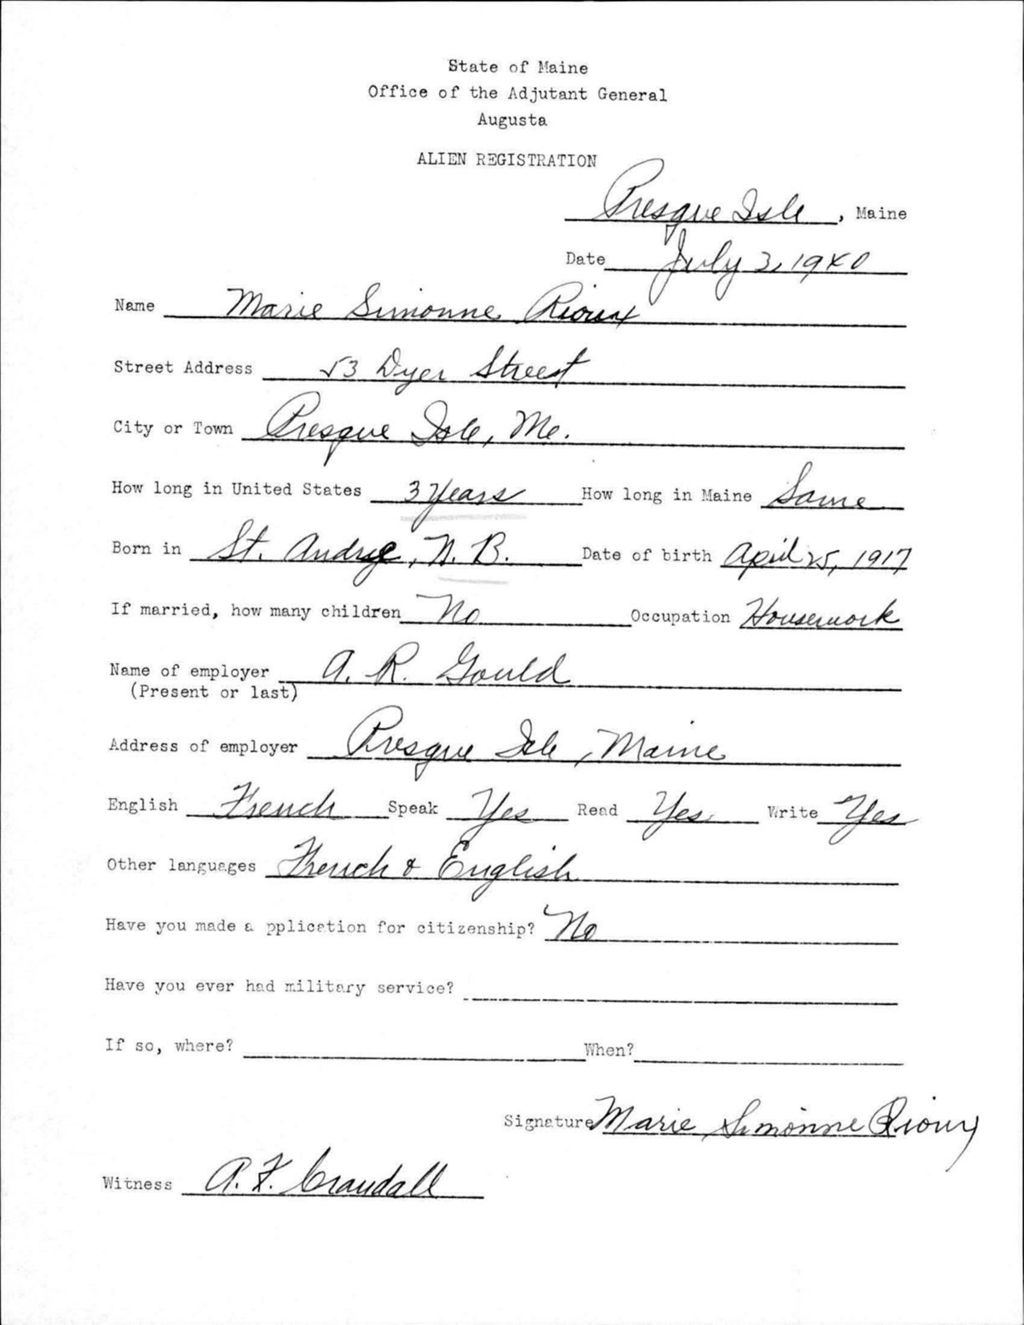 State of Maine
Office of the Adjutant General
Augusta
ALIEN REGISTRATION
Presque Isle, Maine
Date July 3, 1940
Name Marie Simonne Rioux
Street Address 53 Dyer Street
City or Town Presque Isle, Me.
How long in United States 3 Years How long in Maine Same
Born in St. Andre, N. B. Date of birth April 25, 1917
If married, how many children No Occupation Housework
Name of employer A. R. Gould
(Present or last)
Address of employer Presque Isle, Maine
English French Speak Yes Read Yes Write Yes
Other languages French & English
Have you made a pplication for citizenship? No
Have you ever had military service?
If so, where? When?
Signature Marie Simonne Rioux
Witness A. F. Crandall